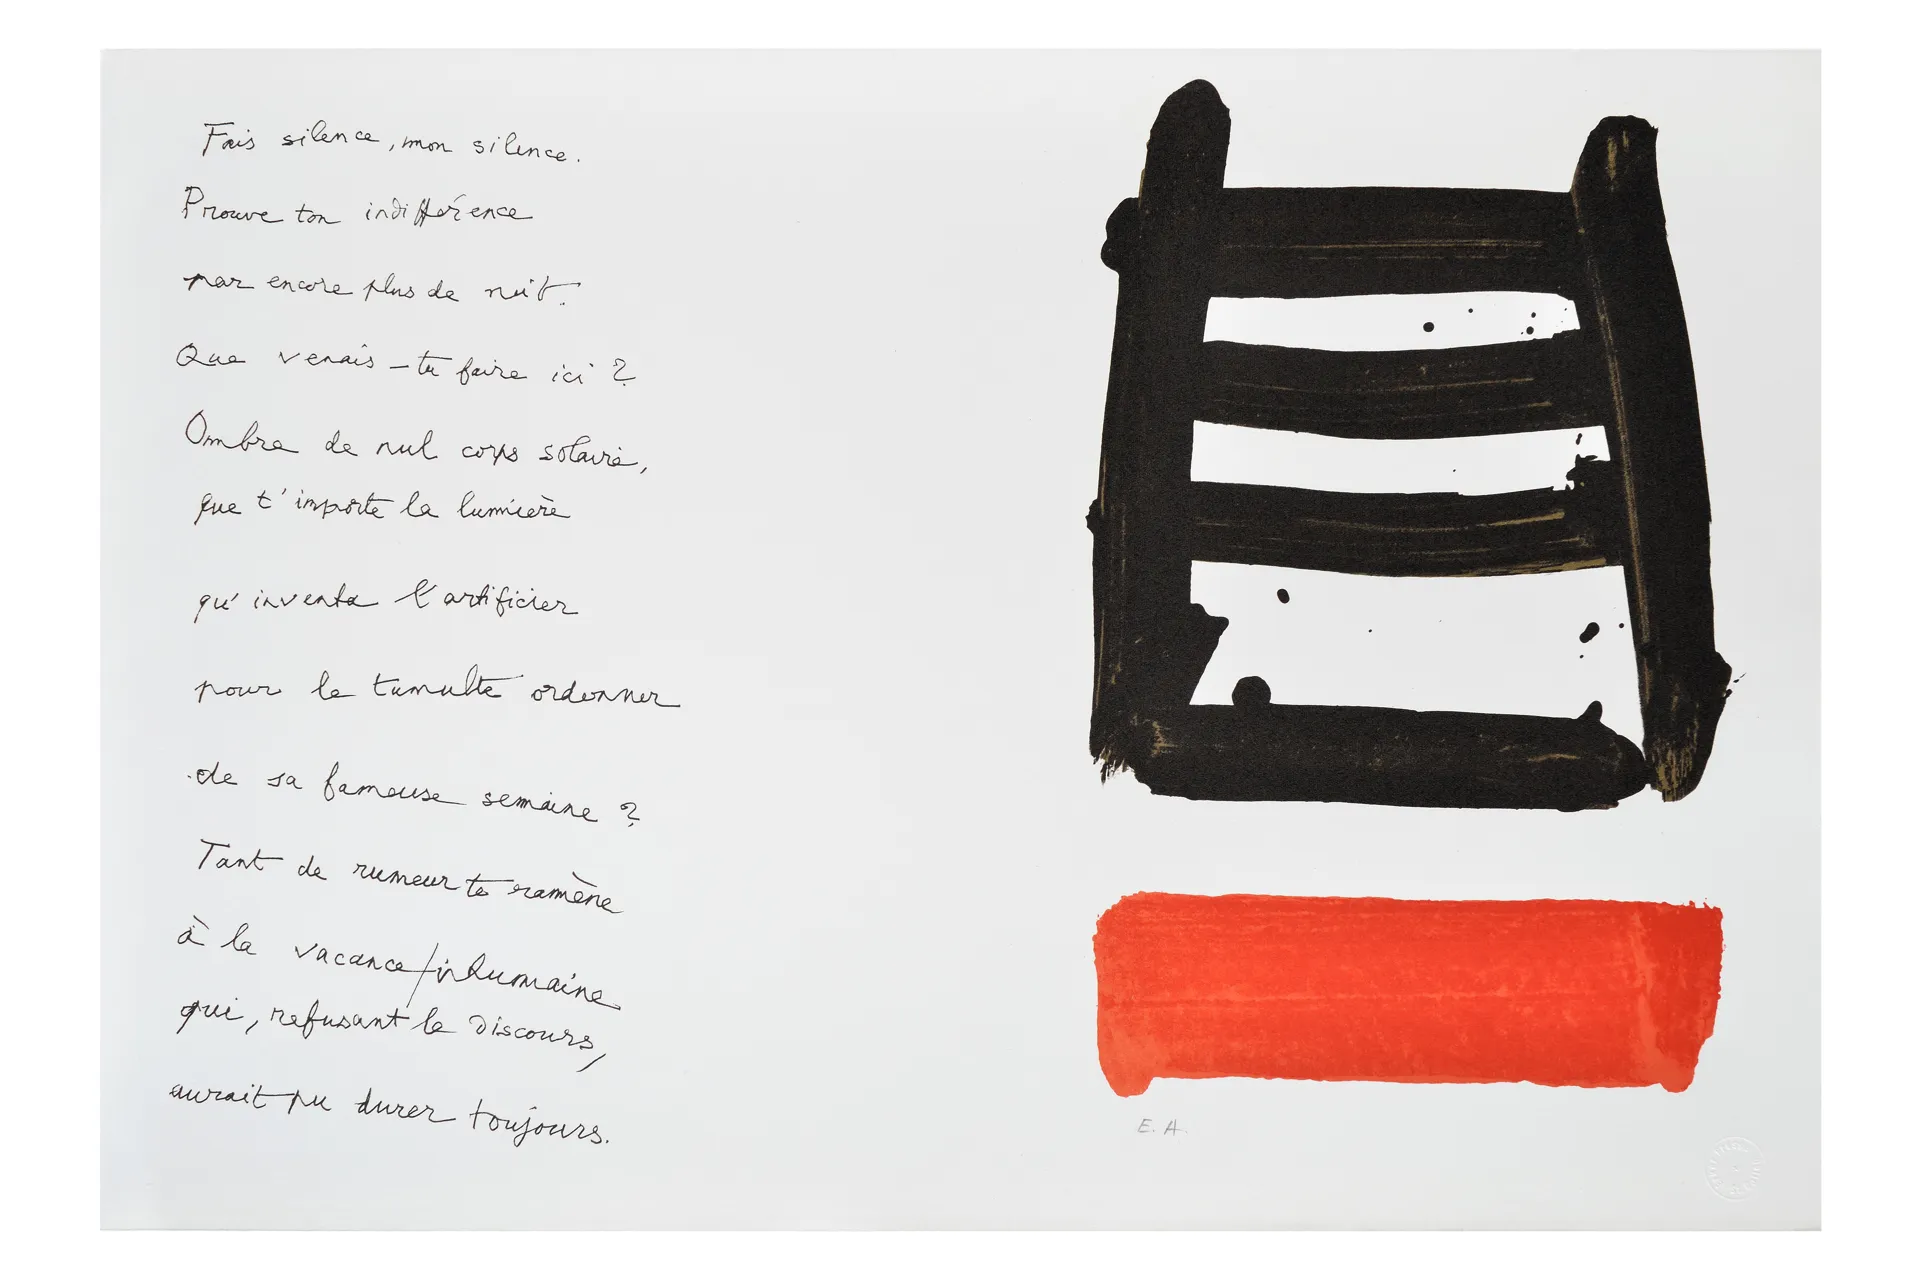 Fais silence, mon silence.
Prouve ton indifférence
par encore plus de nuit.
Que venais-tu faire ici ?
Ombre de nul corps solaire,
que t'importe la lumière
qu'inventa l'artificier
pour le tumulte ordonner
de sa fameuse semaine ?
Tant de rumeur te ramène
à la vacance/inhumaine
qui, refusant le discours,
aurait pu durer toujours.
E. A.